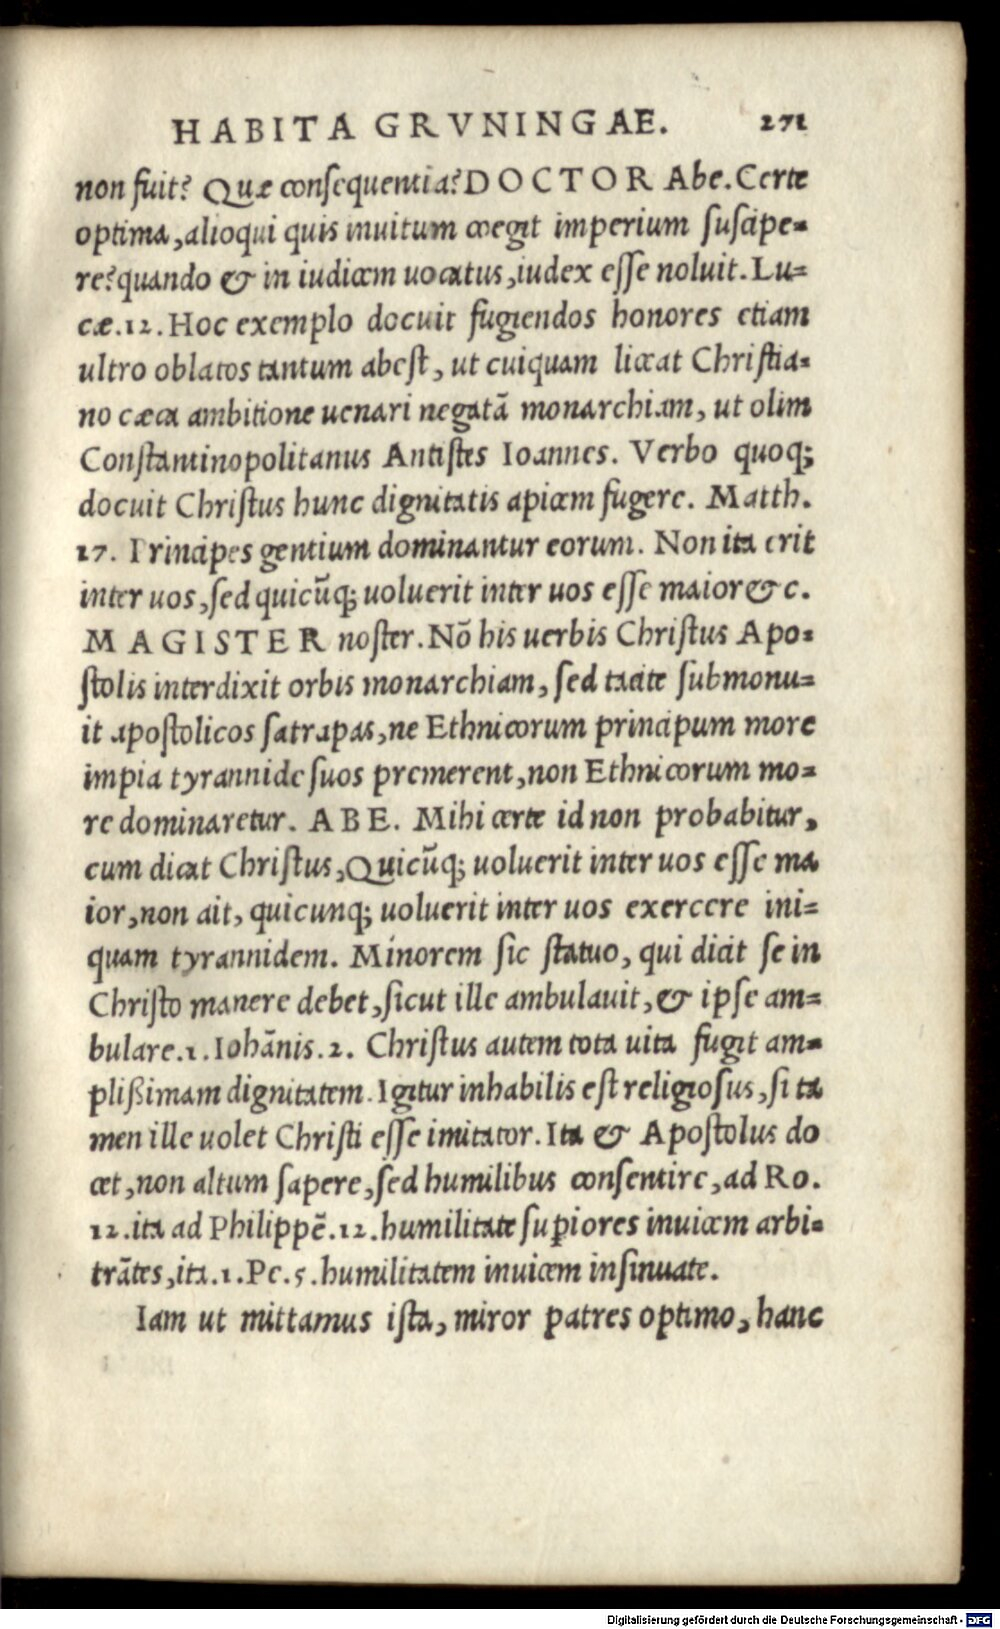 HABITA GRVNINGAE. 271
non fuit? Quæ consequentia? DOCTOR Abe. Certe
optima, alioqui quis inuitum coegit imperium suscipe-
re? quando & in iudicem uocatus, iudex esse noluit. Lu-
cæ. 12. Hoc exemplo docuit fugiendos honores etiam
ultro oblatos tantum abest, ut cuiquam liceat Christia-
no cæca ambitione uenari negatã monarchiam, ut olim
Constantinopolitanus Antistes Ioannes. Verbo quoq;
docuit Christus hunc dignitatis apicem fugere. Matth.
17. Principes gentium dominantur eorum. Non ita erit
inter uos, sed quicũq; uoluerit inter uos esse maior &c.
MAGISTER noster. Nõ his uerbis Christus Apo-
stolis interdixit orbis monarchiam, sed tacite submonu-
it apostolicos satrapas, ne Ethnicorum principum more
impia tyrannide suos premerent, non Ethnicorum mo-
re dominaretur. ABE. Mihi certe id non probabitur,
cum dicat Christus, Quicũq; uoluerit inter uos esse ma
ior, non ait, quicunq; uoluerit inter uos exercere ini-
quam tyrannidem. Minorem sic statuo, qui dicit se in
Christo manere debet, sicut ille ambulauit, & ipse am-
bulare. 1. Iohãnis. 2. Christus autem tota uita fugit am-
plißimam dignitatem. Igitur inhabilis est religiosus, si ta
men ille uolet Christi esse imitator. Ita & Apostolus do
cet, non altum sapere, sed humilibus consentire, ad Ro.
12. ita ad Philippẽ. 12. humilitate suꝑiores inuicem arbi-
trãtes, ita. 1. Pe. 5. humilitatem inuicem insinuate.
Iam ut mittamus ista, miror patres optimo, hanc
Digitalisierung gefördert durch die Deutsche Forschungsgemeinschaft - DFG